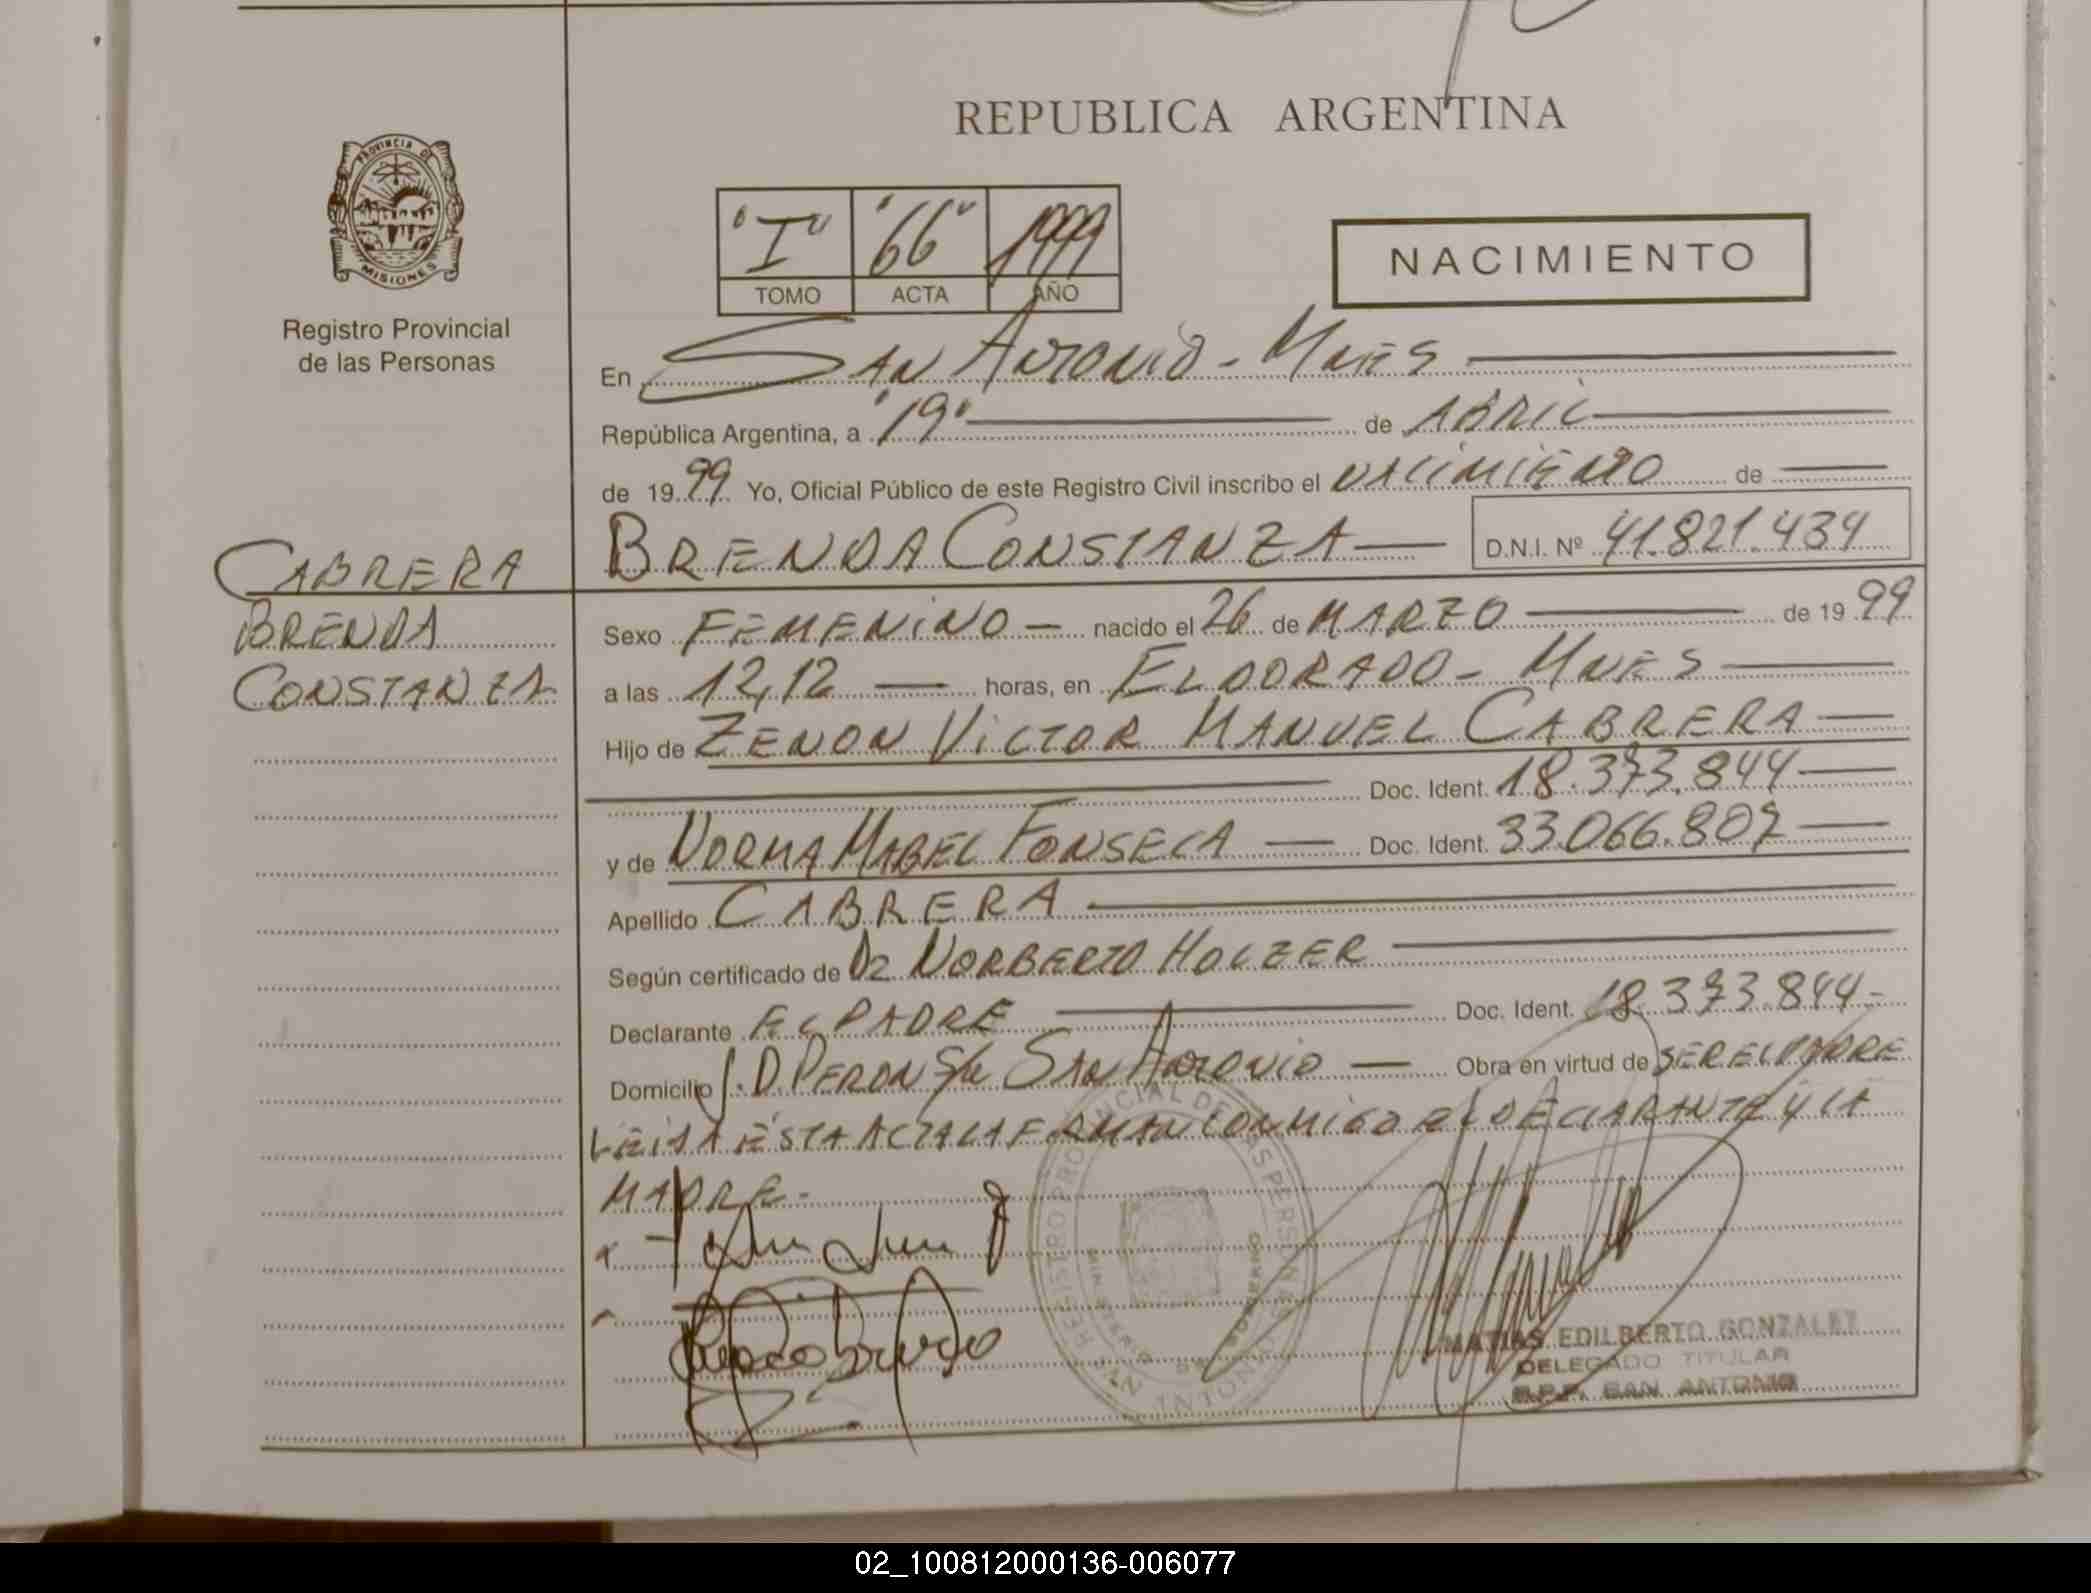 REPUBLICA ARGENTINA
PROVINCIA DE
MISIONES
Registro Provincial
de las Personas
"I" "66" 1999
TOMO ACTA AÑO
NACIMIENTO
En SAN ANTONIO - MNES
República Argentina, a "19" de ABRIL
de 1999 Yo, Oficial Público de este Registro Civil inscribo el NACIMIENTO de
BRENDA CONSTANZA D.N.I. Nº 41.821.434
CABRERA
BRENDA
CONSTANZA
Sexo FEMENINO nacido el 26 de MARZO de 1999
a las 12,12 horas, en ELDORADO - MNES
Hijo de ZENON VICTOR MANUEL CABRERA
Doc. Ident. 18.373.844
y de NORMA MABEL FONSECA Doc. Ident. 33.066.807
Apellido CABRERA
Según certificado de Dr NORBERTO HOLZER
Declarante EL PADRE Doc. Ident. 18.373.844
Domicilio J.D. PERON S/N SAN ANTONIO Obra en virtud de SER EL PADRE
LEIDA ESTA ACTA LA FIRMAN CONMIGO EL DECLARANTE Y LA
MADRE.-
REGISTRO PROVINCIAL DE LAS PERSONAS
MINISTERIO DE GOBIERNO
SAN ANTONIO
MATIAS EDILBERTO GONZALEZ
DELEGADO TITULAR
R.P.P. SAN ANTONIO
02_100812000136-006077